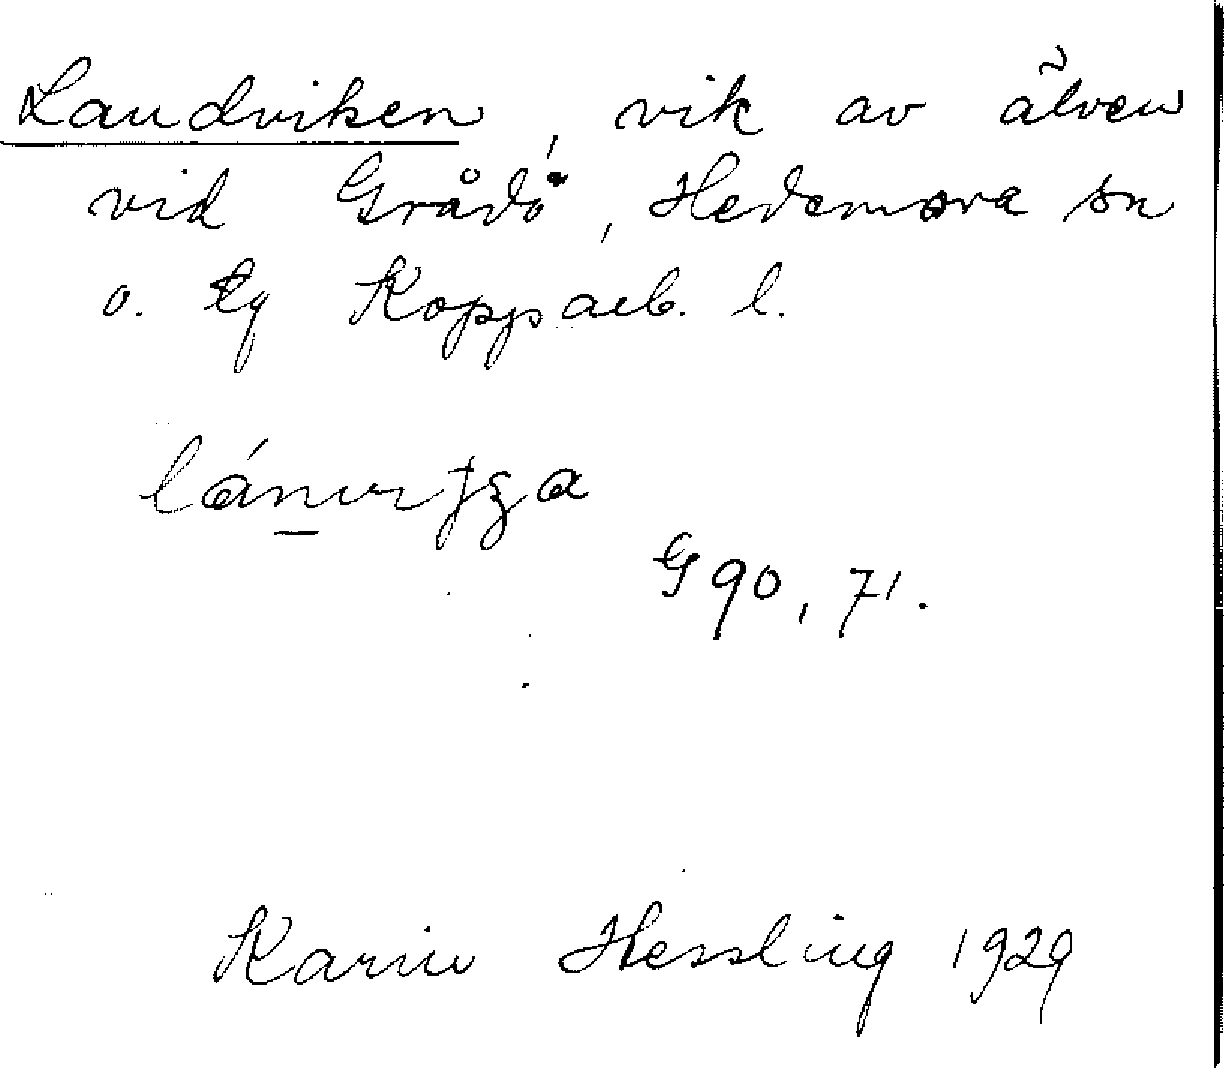 Landviken, vik av älven
vid Grådö, Hedemora sn
o. tg Kopparb. l.
G 90, 71.
Karin Hessling 1929